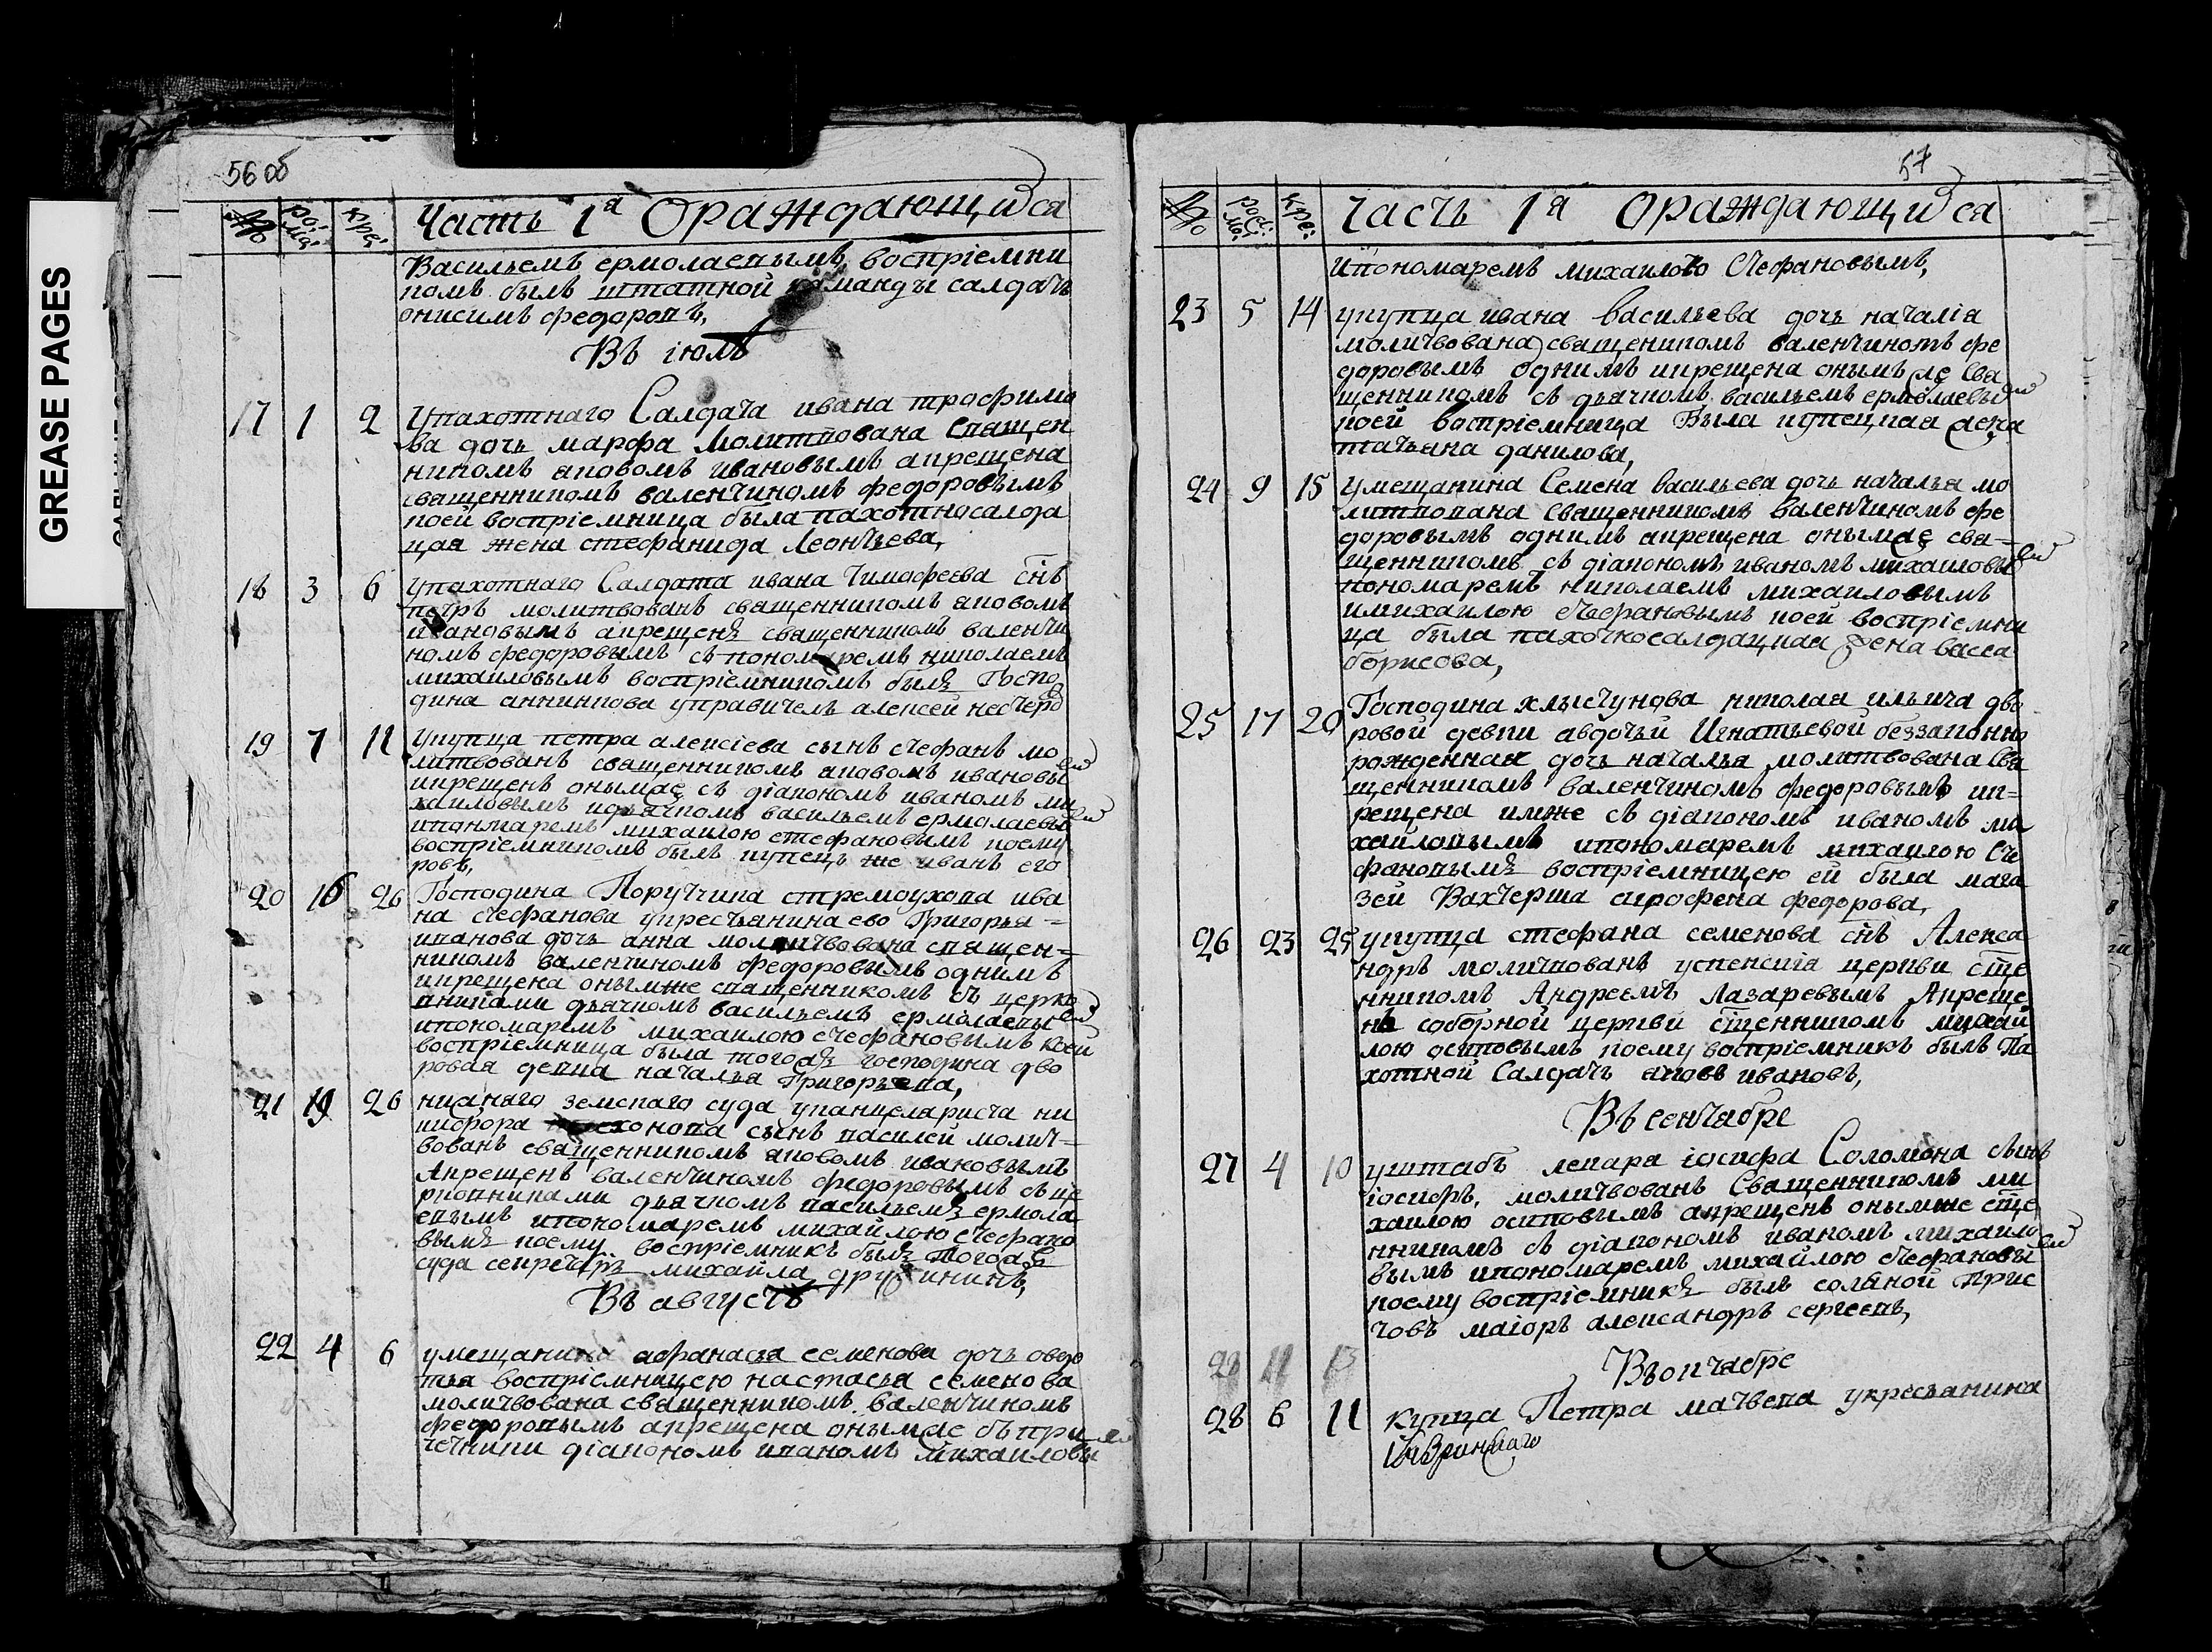 GREASE PAGES
56 об
№ рож: кре:
Часть 1я Ораждающихся
Васильемъ ермолаевымъ, воспріемни
комъ былъ штатной команды салдатъ
онисимъ федоровъ,
Въ іюлѣ
17 1 2 Упахотнаго Салдата ивана трофимо
ва дочь марфа молитвована священ
никомъ яковомъ ивановымъ акрещена
священникомъ валентиномъ федоровымъ
коей воспріемница была пахотносалда
цкая жена стефанида Леонтьева,
18 3 6 упахотнаго Салдата ивана Тимофеева снъ
петръ молитвованъ священникомъ яковомъ
ивановымъ акрещенъ священникомъ валенти
номъ федоровымъ съ пономаремъ николаемъ
михаиловымъ воспріемникомъ былъ Госпо
дина анникова управитель алексей нестеро
19 7 11 Укупца петра алексіева сынъ стефанъ мо
литвованъ священникомъ яковомъ ивановы
икрещенъ онымже съ діакономъ иваномъ ми
хаиловымъ идьячкомъ васильемъ ермолаевы
ипонмаремъ михаилою стефановымъ коему
воспріемникомъ былъ купецъ же иванъ его
ровъ,
20 16 26 Господина Поруттчика стремоухова ива
на стефанова укресьянина ево Григорья
иванова дочь анна молитвована священ=
никомъ валентиномъ федоровымъ однимъ
икрещена онымже священникомъ съ церко
вниками дьячкомъ васильемъ ермолаевы
ипономаремъ михаилою стефановымъ коей
воспріемница была тогожъ господина дво
ровая девка наталья Григорьева,
21 19 26 нижнаго земскаго суда уканцеляриста ни
кифора сынъ василей молит=
вованъ священникомъ яковомъ ивановымъ
Акрещенъ валентиномъ федоровымъ съ це
рковниками дьячкомъ васильемъ ермола
евымъ ипономаремъ михайлою стефано
вымъ коему воспріемникъ былъ тогожъ
суда секретарь михайла дружининъ,
Въ августѣ
22 4 6 умещанина афанасья семенова дочь овдо
тья воспріемницею настасья семенова
молитвована священникомъ валентиномъ
федоровымъ акрещена онымже съ при
четники діакономъ иваномъ михаиловы
57
№ рож: кре:
Часть 1я Ораждающихся
ипономаремъ михаилою Стефановымъ,
23 5 14 укупца ивана васильева дочь наталія
молитвована священникомъ валентиномъ фе
доровымъ однимъ икрещена онымъ же свя
щенникомъ съ дьячкомъ васильемъ ермолаевы
коей воспріемница была купецкая жена
татьяна данилова,
24 9 15 умещанина Семена васильева дочь наталья мо
литвована священникомъ валентиномъ фе
доровымъ однимъ акрещена онымже свя=
щенникомъ съ діакономъ иваномъ михаиловы
пономаремъ николаемъ михаиловымъ
имихаилою стефановымъ коей воспріемни
ца была пахотносалдацкая жена васса
борисова,
25 17 20 Господина хлыстунова николая ильича дво
ровой девки авдотьи Игнатьевой беззаконно
рожденная дочь наталья молитвована свя
щенникомъ валентиномъ федоровымъ ик=
рещена имже съ діакономъ иваномъ ми
хаиловымъ ипономаремъ михаилою Сте
фановымъ воспріемницею ей была мага
зей Вахтерша агрофена федорова,
26 23 25 укупца стефана семенова снъ Алекса
ндръ молитвованъ успенскія церкви сще
нникомъ Андреемъ Лазаревымъ Акреще
нъ соборной церкви сщенникомъ михай
лою осиповымъ коему воспріемникъ былъ Па
хотной Салдатъ яковъ ивановъ,
Въ сентябре
27 4 10 уштабъ лекара іосифа Соломона сынъ
іосифъ, молитвованъ Священникомъ ми
хаилою осиповымъ акрещенъ онымже сще
нникомъ съ діакономъ иваномъ михаило
вымъ ипономаремъ михайлою стефановы
коему воспріемникъ былъ соляной прис
товъ маіоръ александръ сергеевъ,
28 11 13 Въ октябре
28 6 11 купца Петра матвева укресьянина